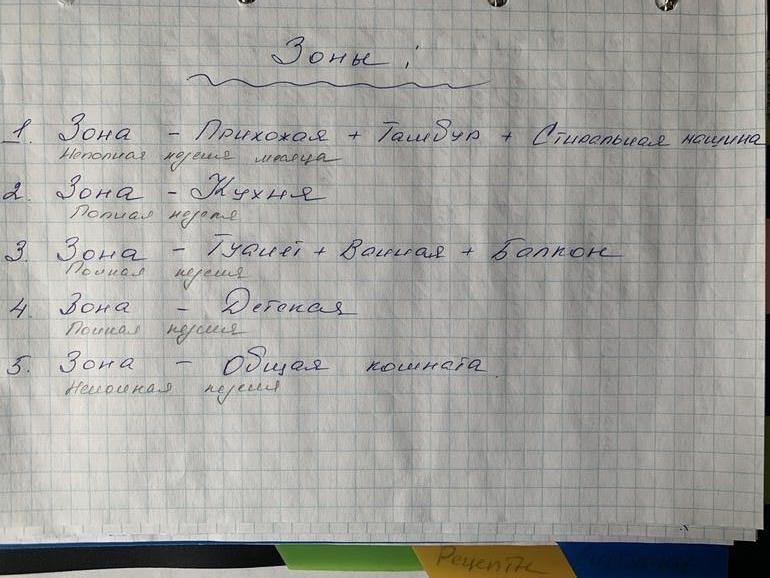 Зоны:
1. Зона - Прихожая + Тамбур + Стиральная машина
Неполная неделя месяца
2. Зона - Кухня
Полная неделя
3. Зона - Туалет + Ванная + Балкон
Полная неделя
4. Зона - Детская
Полная неделя
5. Зона - Общая комната.
Неполная неделя
Рецепты